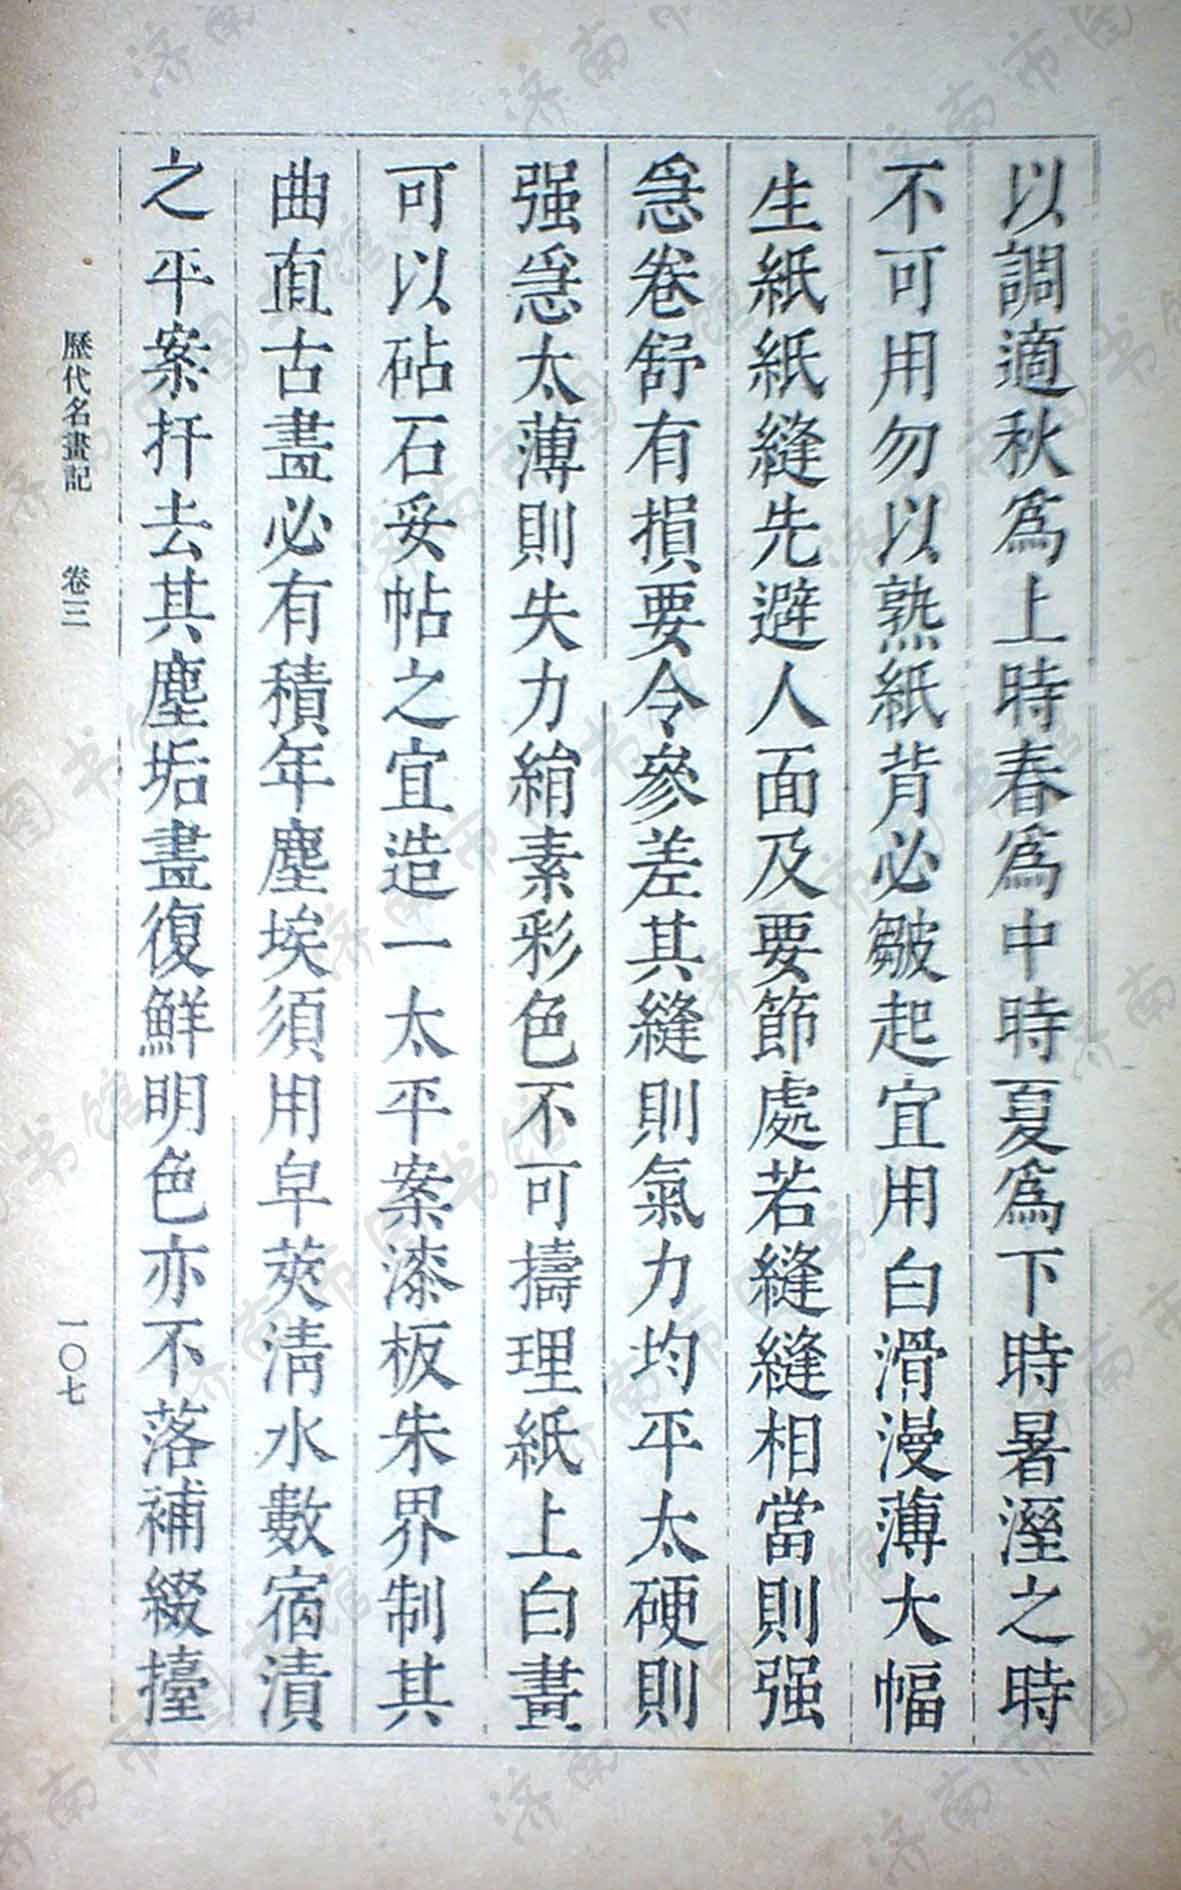 以調適秋爲上時春爲中時夏爲下時暑溼之時
不可用勿以熟紙背必皺起宜用白滑漫薄大幅
生紙紙縫先避人面及要節處若縫縫相當則强
急卷舒有損要令參差其縫則氣力均平太硬則
强急太薄則失力絹素彩色不可擣理紙上白畫
可以砧石妥帖之宜造一太平案漆板朱界制其
曲直古畫必有積年塵埃須用皁莢清水數宿漬
之平案扞去其塵垢畫復鮮明色亦不落補綴擡
歷代名畫記 卷三 一〇七
济南市图书馆